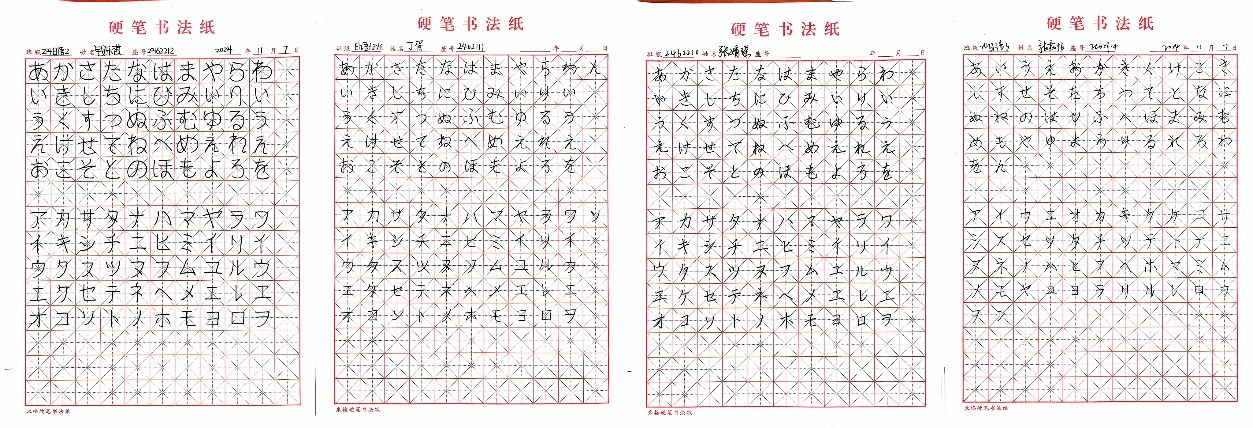 硬笔书法纸
班级 姓名 座号2462212 2024年11月7日
あかさたなはまやらわ
いきしちにひみいりい
うくすつぬふむゆるう
えけせてねへめえれえ
おこそとのほもよろを
アカサタナハマヤラワ
イキシチニヒミイリイ
ウクスツヌフムユルウ
エケセテネヘメエレエ
オコソトノホモヨロヲ
米格硬笔书法纸
硬笔书法纸
班级 姓名 座号 年 月 日
あかさたなはまやらわん
いきしちにひみいりい
うくすつぬふむゆるう
えけせてねへめえれえ
おこそとのほもよろを
アカサタナハマヤラワン
イキシチニヒミイリイ
ウクスツヌフムユルウ
エケセテネヘメエレエ
オコソトノホモヨロヲ
米格硬笔书法纸
硬笔书法纸
班级 姓名 座号 年 月 日
あかさたなはまやらわ
いきしちにひみいりい
うくすつぬふむゆるう
えけせてねへめえれえ
おこそとのほもよろを
アカサタナハマヤラワ
イキシチニヒミイリイ
ウクスツヌフムユルウ
エケセテネヘメエレエ
オコソトノホモヨロヲ
米格硬笔书法纸
硬笔书法纸
班级 姓名 座号 年11月7日
あいうえおかきくけこさ
しすせそたちつてとなに
ぬねのはひふへほまみむ
めもやゆよらりるれろわ
をん
アイウエオカキクケコサ
シスセソタチツテトナニ
ヌネノハヒフヘホマミム
メモヤユヨラリルレロワ
ヲン
米格硬笔书法纸